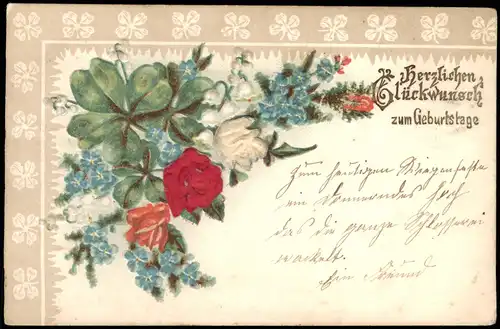 Herzlichen
Glückwunsch
zum Geburtstage
Zum heutigen Wiegenfeste
ein donnerndes Hoch
das die ganze Schlosserei
wackelt.
Ein Freund